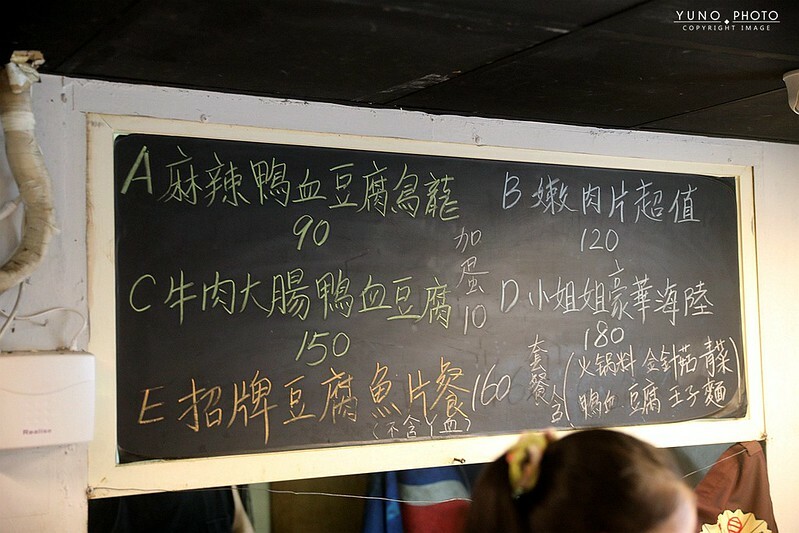 YUNO PHOTO
COPYRIGHT IMAGE
A 麻辣鴨血豆腐烏龍
90
B 嫩肉片超值
120
加蛋10
C 牛肉大腸鴨血豆腐
150
D 小姐姐豪華海陸
180
E 招牌豆腐魚片餐 160
(不含丫血)
套餐含
(火锅料 金針菇 青菜
鴨血 豆腐 王子麵)
Realisa